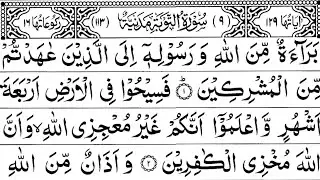 اٰیَاتُهَا ١٢٩ (٩) سُوْرَةُ التَّوْبَةِ مَدَنِیَّةٌ (١١٣) رُكُوْعَاتُهَا ١٦
بَرَآءَةٌ مِّنَ اللّٰهِ وَ رَسُوْلِهٖۤ اِلَى الَّذِیْنَ عٰهَدْتُّمْ
مِّنَ الْمُشْرِكِیْنَ ۝١ فَسِیْحُوْا فِی الْاَرْضِ اَرْبَعَةَ
اَشْهُرٍ وَّاعْلَمُوْۤا اَنَّكُمْ غَیْرُ مُعْجِزِی اللّٰهِ ۙ وَاَنَّ
اللّٰهَ مُخْزِی الْكٰفِرِیْنَ ۝٢ وَ اَذَانٌ مِّنَ اللّٰهِ